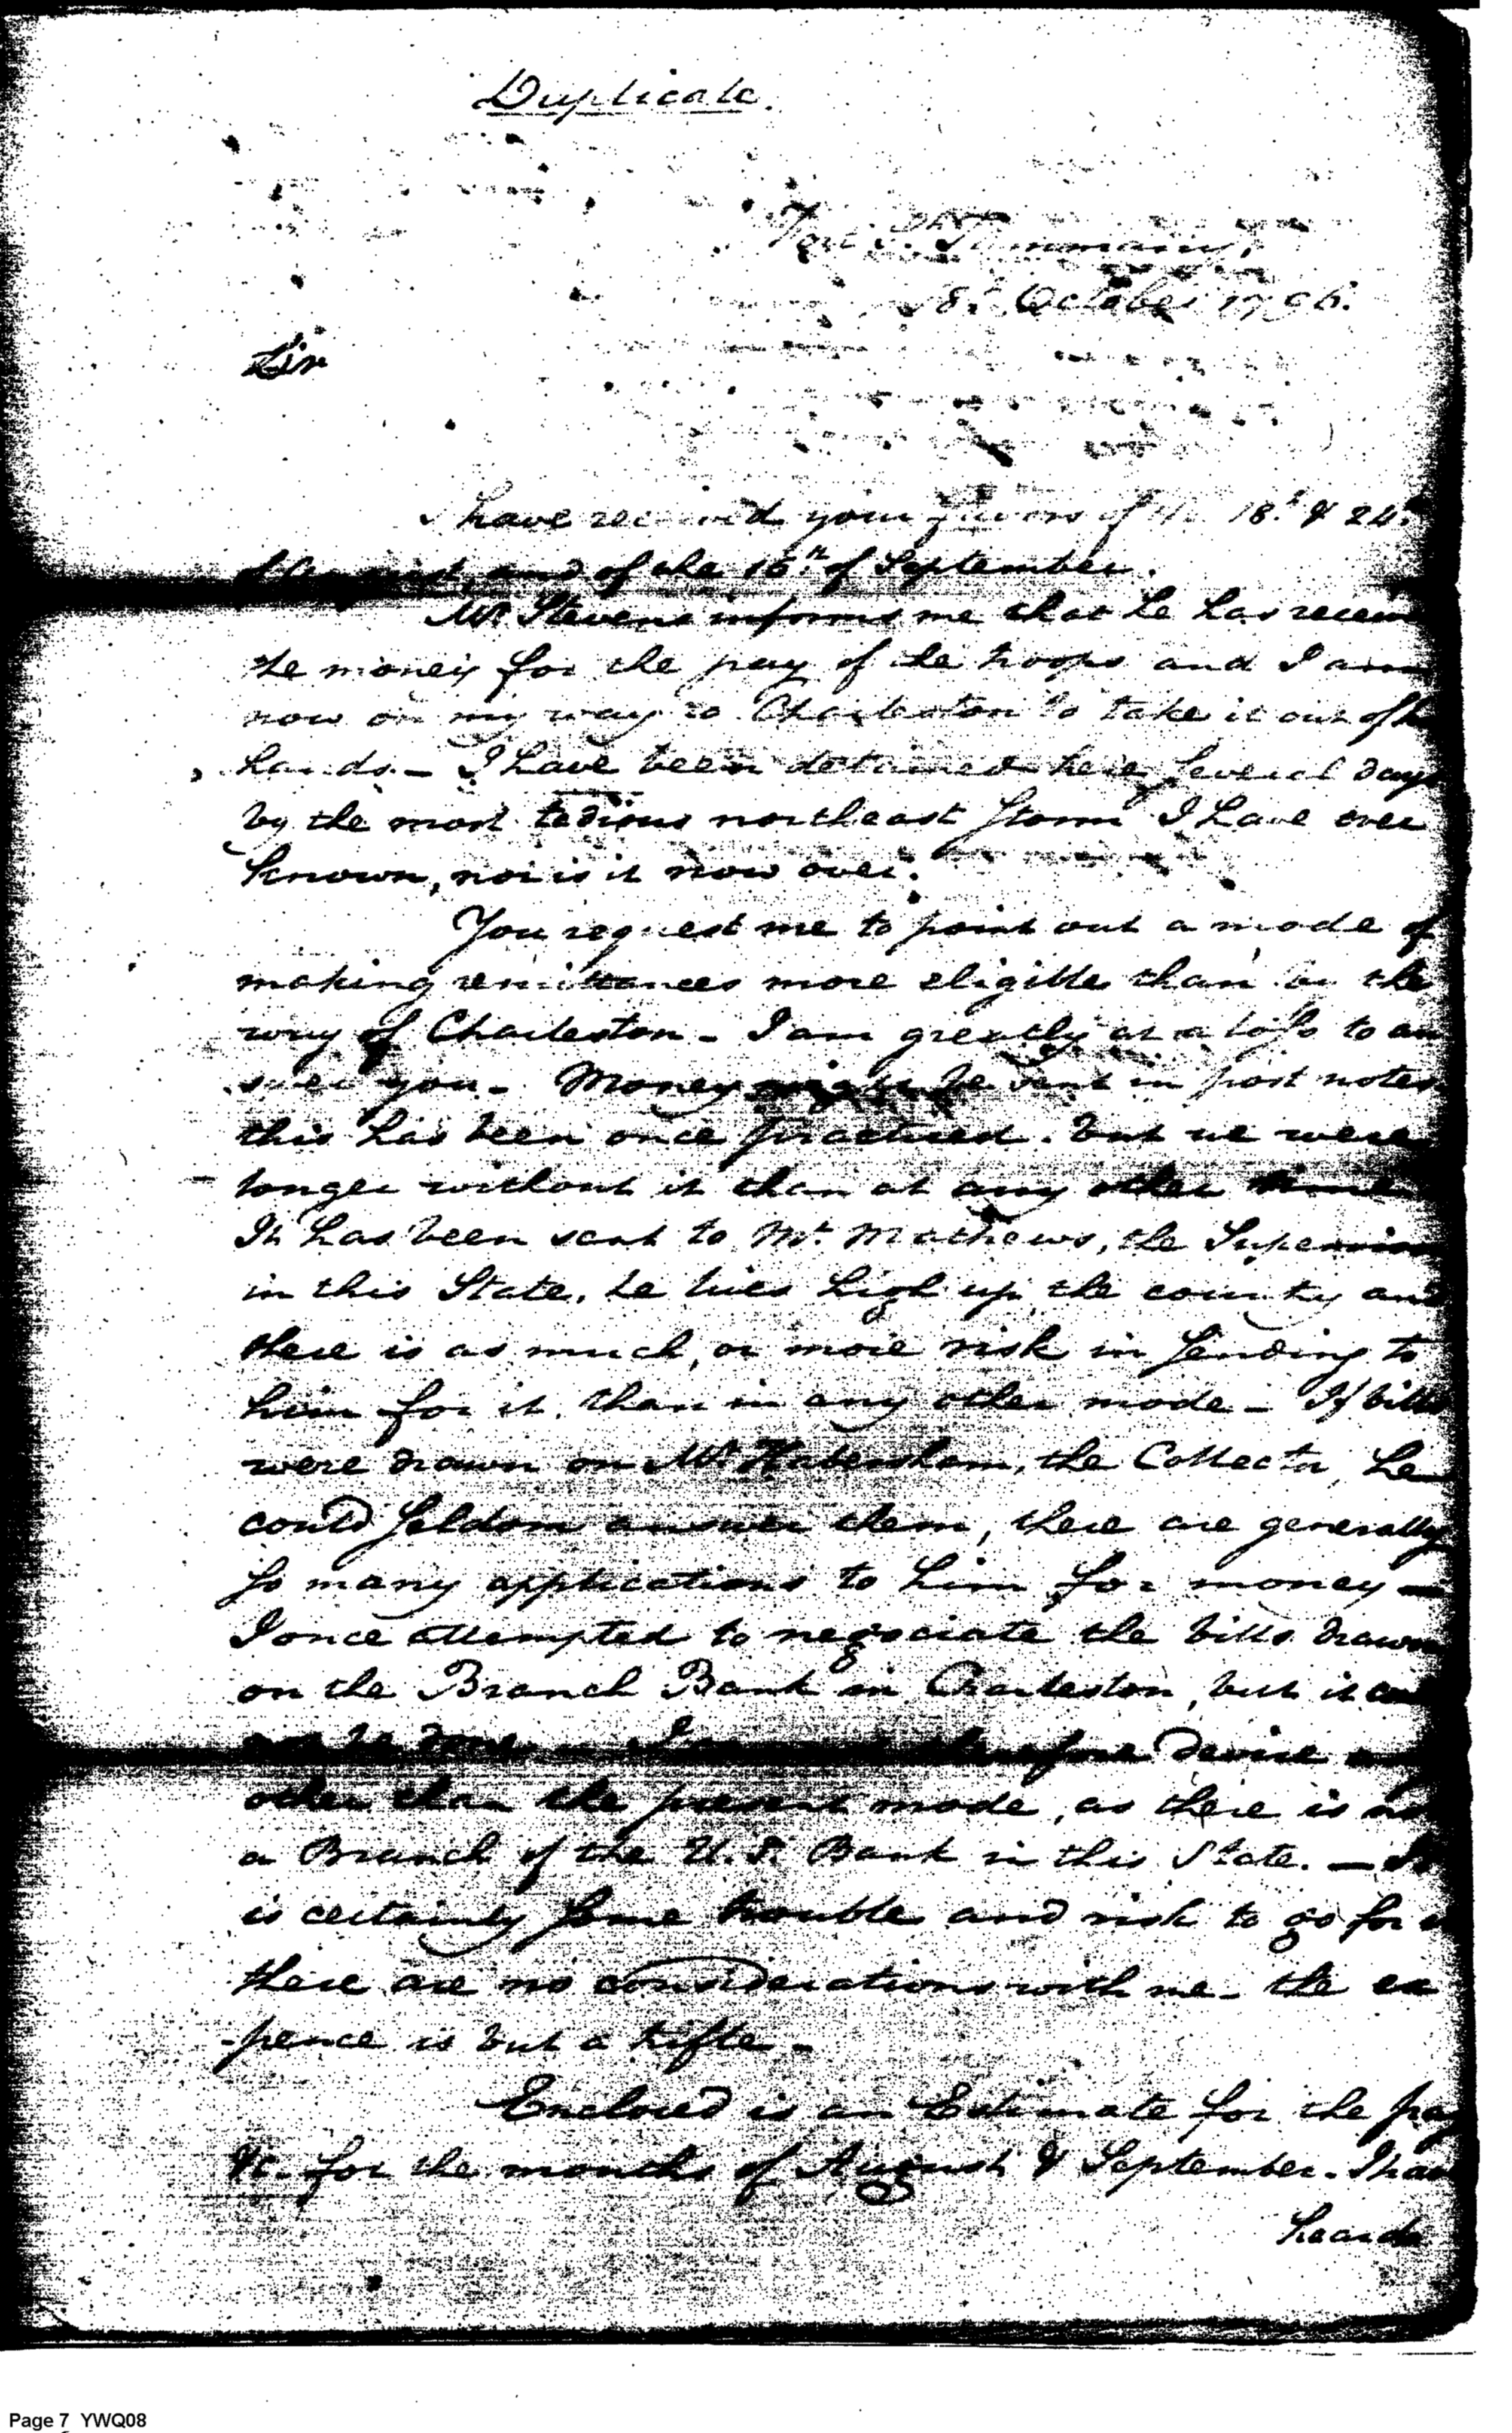 Duplicate.
Fort St. Tammany,
8th October 1796.
Sir
I have received your favors of the 18th & 24th
of August, and of the 16th of September.
Mr. Stevens informs me that he has receiv
the money for the pay of the troops and I am
now on my way to Charleston to take it out of h
hands. - I have been detained here several days
by the most tedious northeast storm I have ever
known, nor is it now over.
You request me to point out a mode of
making remittances more eligible than by the
way of Charleston - I am greatly at a loss to an
swer you - Money might be sent in post notes
this has been once practiced. but we were
longer without it than at any other time
It has been sent to Mr. Mathews, the Supervisor
in this State, he lives high up the country and
there is as much, or more risk in sending to
him for it, than in any other mode - If bills
were drawn on Mr. Habersham, the Collector, he
could seldom answer them, there are generally
so many applications to him for money -
I once attempted to negociate the bills drawn
on the Branch Bank in Charleston, but it
not be done - I therefore devise
other than the present mode, as there is no
a Branch of the U.S. Bank in this State. - It
is certainly some trouble and risk to go for
these are no considerations with me - the ex
-pence is but a trifle -
Enclosed is an Estimate for the pay
&c. for the months of August & September - I have
heard